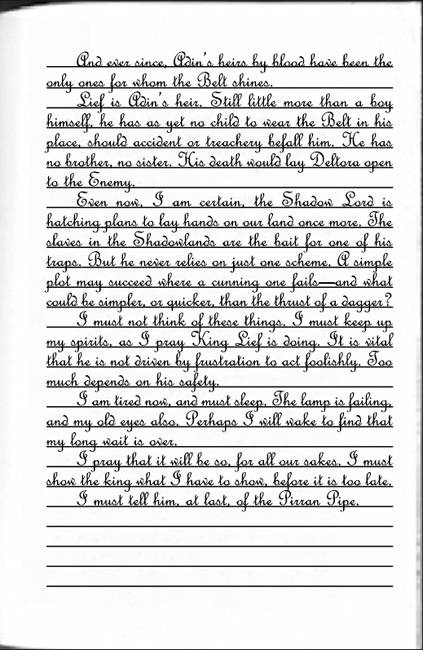 And ever since, Adin's heirs by blood have been the
only ones for whom the Belt shines.
Lief is Adin's heir. Still little more than a boy
himself, he has as yet no child to wear the Belt in his
place, should accident or treachery befall him. He has
no brother, no sister. His death would lay Deltora open
to the Enemy.
Even now, I am certain, the Shadow Lord is
hatching plans to lay hands on our land once more. The
slaves in the Shadowlands are the bait for one of his
traps. But he never relies on just one scheme. A simple
plot may succeed where a cunning one fails—and what
could be simpler, or quicker, than the thrust of a dagger?
I must not think of these things. I must keep up
my spirits, as I pray King Lief is doing. It is vital
that he is not driven by frustration to act foolishly. Too
much depends on his safety.
I am tired now, and must sleep. The lamp is failing,
and my old eyes also. Perhaps I will wake to find that
my long wait is over.
I pray that it will be so, for all our sakes. I must
show the king what I have to show, before it is too late.
I must tell him, at last, of the Pirran Pipe.